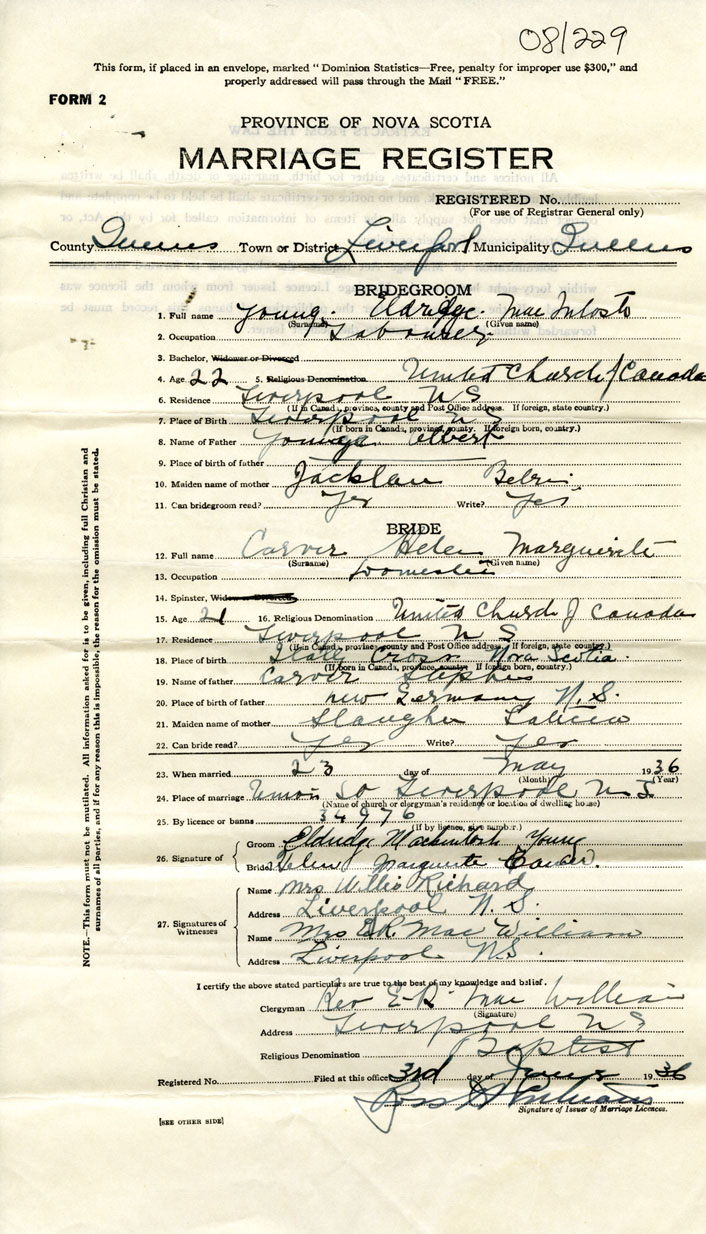 08/229
This form, if placed in an envelope, marked "Dominion Statistics—Free, penalty for improper use $300," and
properly addressed will pass through the Mail "FREE."
FORM 2
PROVINCE OF NOVA SCOTIA
MARRIAGE REGISTER
REGISTERED No.
(For use of Registrar General only)
County Queens Town or District Liverpool Municipality Queens
BRIDEGROOM
1. Full name Young Eldridge MacIntosh
(Surname) (Given name)
2. Occupation Labourer
3. Bachelor, Widower or Divorced
4. Age 22 5. Religious Denomination United Church of Canada
6. Residence Liverpool N S
(If in Canada, province, county and Post Office address. If foreign, state country.)
7. Place of Birth Liverpool N S
(If born in Canada, province, county. If foreign born, country.)
8. Name of Father Young Albert
9. Place of birth of father
10. Maiden name of mother
11. Can bridegroom read? Yes Write? Yes
BRIDE
12. Full name Carver Helen Marguerite
(Surname) (Given name)
13. Occupation Domestic
14. Spinster, Widow or Divorced
15. Age 21 16. Religious Denomination United Church of Canada
17. Residence Liverpool N S
(If in Canada, province, county and Post Office address. If foreign, state country.)
18. Place of birth Cross Nova Scotia
(If born in Canada, province, county. If foreign born, country.)
19. Name of father Carver Stephen
20. Place of birth of father New Germany N.S.
21. Maiden name of mother
22. Can bride read? Yes Write? Yes
23. When married 23 day of May 1936
(Month) (Year)
24. Place of marriage Union St Liverpool N S
(Name of church or clergyman's residence or location of dwelling house)
25. By licence or banns 34976
(If by licence, give number.)
26. Signature of
Groom Eldridge Mackintosh Young
Bride Helen Marguerite Carver.
27. Signatures of Witnesses
Name Mrs Willis Richard
Address Liverpool N.S.
Name Mrs E.R. MacWilliam
Address Liverpool N.S.
I certify the above stated particulars are true to the best of my knowledge and belief.
Clergyman Rev E. R. MacWilliam
(Signature)
Address Liverpool N S
Religious Denomination Baptist
Registered No. Filed at this office 3rd day of June 1936
Signature of Issuer of Marriage Licences.
[SEE OTHER SIDE]
NOTE.—This form must not be mutilated. All information asked for is to be given, including full Christian and
surnames of all parties, and if for any reason this is impossible, the reason for the omission must be stated.